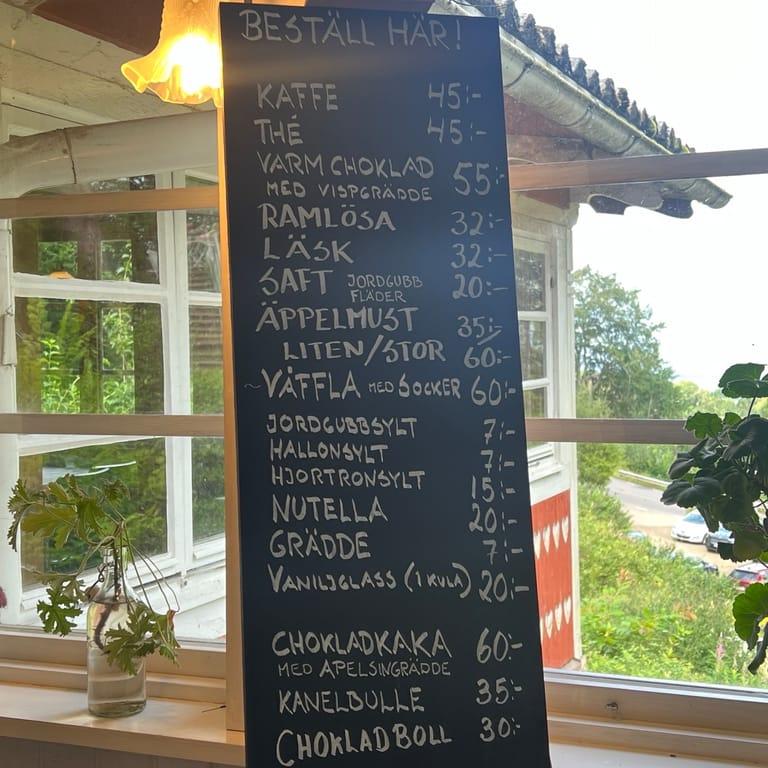 BESTÄLL HÄR!
KAFFE 45:-
THÉ 45:-
VARM CHOKLAD 55:-
MED VISPGRÄDDE
RAMLÖSA 32:-
LÄSK 32:-
SAFT JORDGUBB 20:-
FLÄDER
ÄPPELMUST 35:-/
LITEN/STOR 60:-
~VÅFFLA MED SOCKER 60:-
JORDGUBBSYLT 7:-
HALLONSYLT 7:-
HJORTRONSYLT 15:-
NUTELLA 20:-
GRÄDDE 7:-
VANILJGLASS (1 KULA) 20:-
CHOKLADKAKA 60:-
MED APELSINGRÄDDE
KANELBULLE 35:-
CHOKLADBOLL 30:-